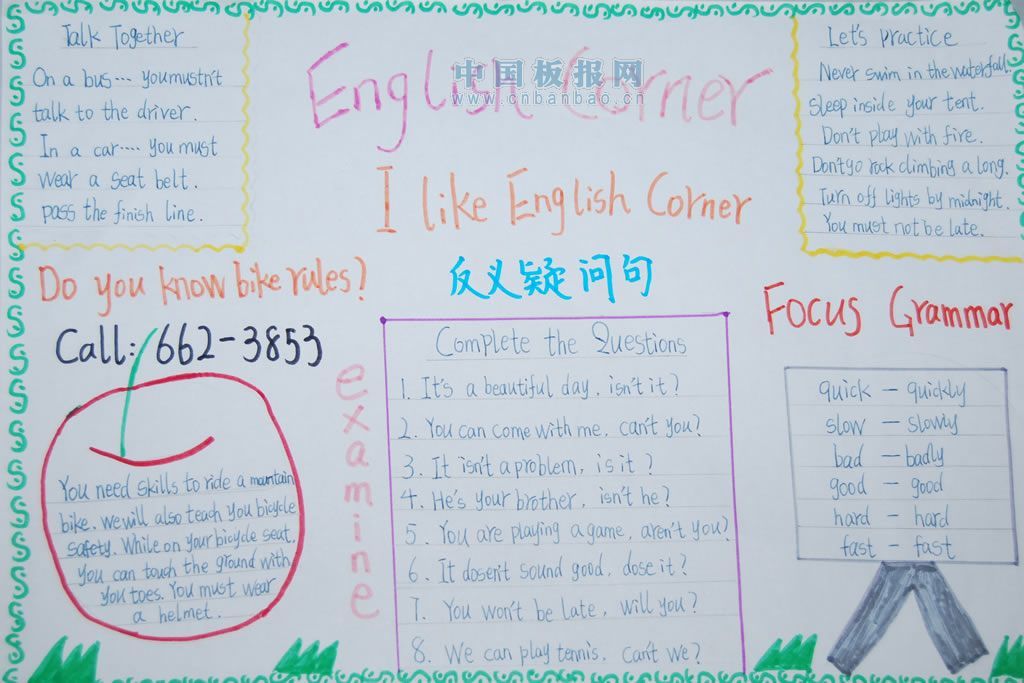 Talk Together
On a bus···· you mustn't
talk to the driver.
In a car···· you must
wear a seat belt.
pass the finish line.
English Corner
中国板报网
www.cnbanbao.cn
I like English Corner
Let's practice
Never swim in the waterfall.
Sleep inside your tent.
Don't play with fire.
Don't go rock climbing a long.
Turn off lights by midnight.
You must not be late.
Do you know bike rules?
Call: 662-3853
You need skills to ride a mountain
bike. we will also teach you bicycle
safety. While on your bicycle seat.
you can touch the ground with
you toes. You must wear
a helmet.
examine
反义疑问句
Complete the Questions
1. It's a beautiful day, isn't it?
2. You can come with me, can't you?
3. It isn't a problem, is it?
4. He's your brother, isn't he?
5. You are playing a game, aren't you?
6. It dosen't sound good, dose it?
7. You won't be late, will you?
8. We can play tennis, can't we?
Focus Grammar
quick — quickly
slow — slowly
bad — badly
good — good
hard — hard
fast — fast